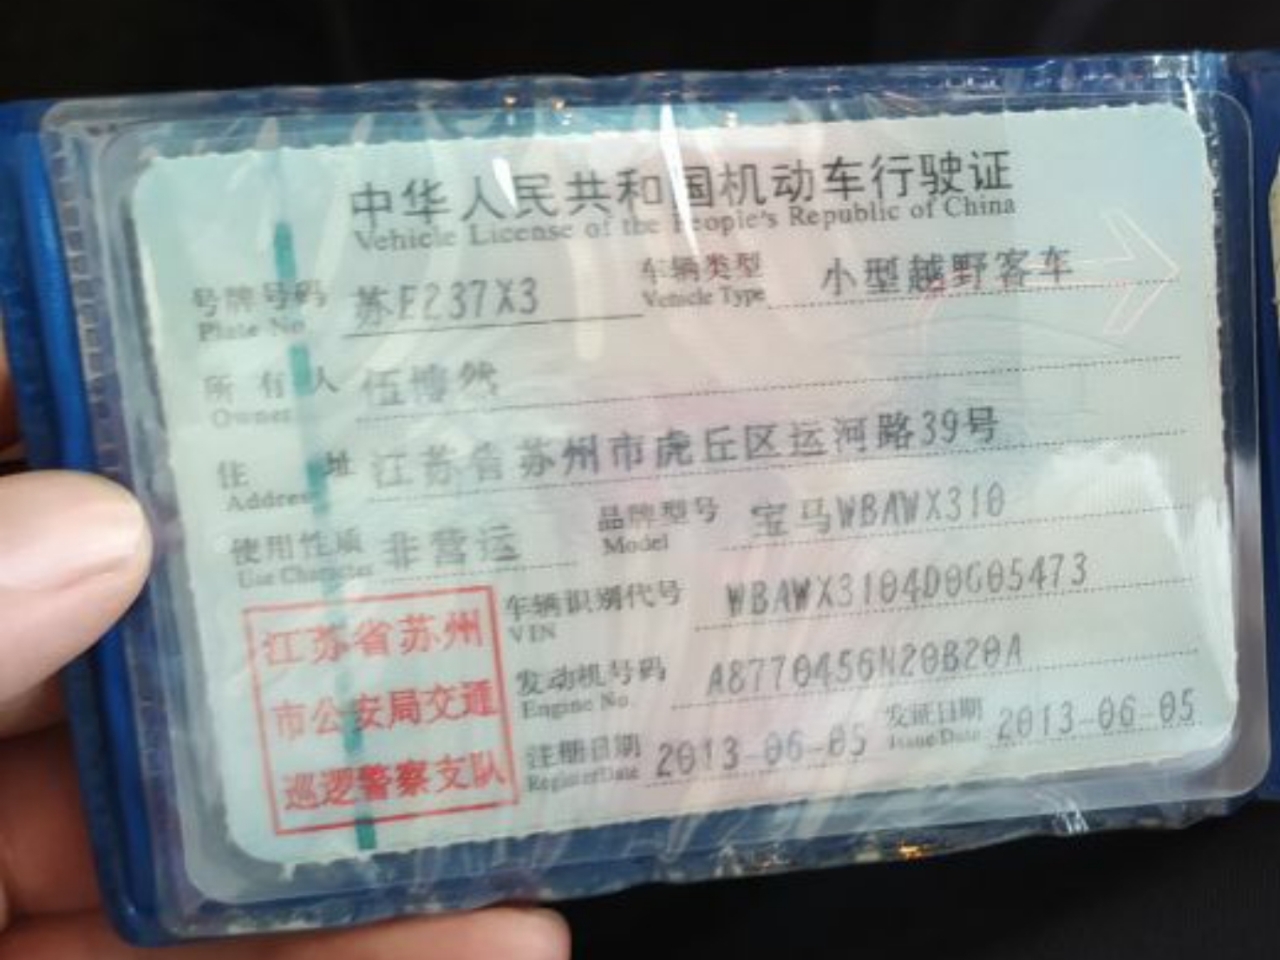 中华人民共和国机动车行驶证
Vehicle License of the People's Republic of China
号牌号码 苏E237X3 车辆类型 小型越野客车
Plate No. Vehicle Type
所有人 伍博然
Owner
住址 江苏省苏州市虎丘区运河路39号
Address
使用性质 非营运 品牌型号 宝马WBAWX310
Use Character Model
江苏省苏州
市公安局交通
巡逻警察支队
车辆识别代号 WBAWX3104D0G05473
VIN
发动机号码 A8770456N20B20A
Engine No.
注册日期 2013-06-05 发证日期 2013-06-05
Register Date Issue Date